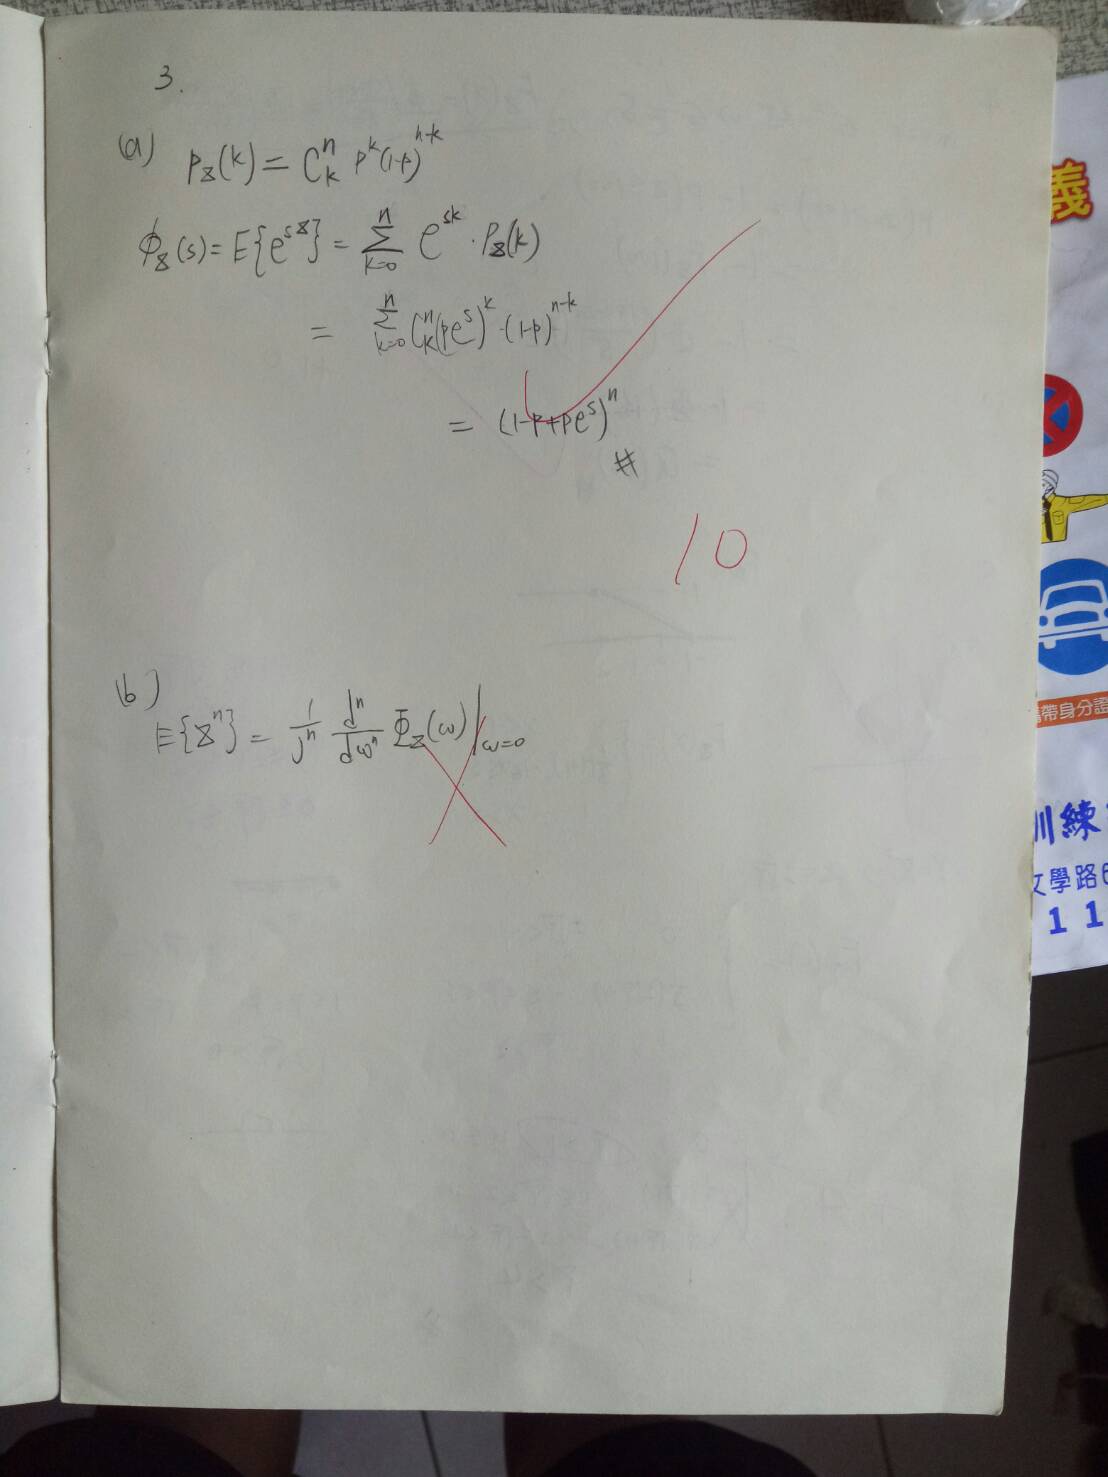 3.
(a) P_z(k) = C_k^n p^k (1-p)^{n-k}
Φ_z(s) = E{e^{sz}} = Σ_{k=0}^{n} e^{sk} · P_z(k)
= Σ_{k=0}^{n} C_k^n (pe^s)^k · (1-p)^{n-k}
= (1-p+pe^s)^n #
10
(b)
E{z^n} = 1/j^n d^n/dω^n Φ_z(ω)|_{ω=0}
義
帶身分證
訓練
文學路
11